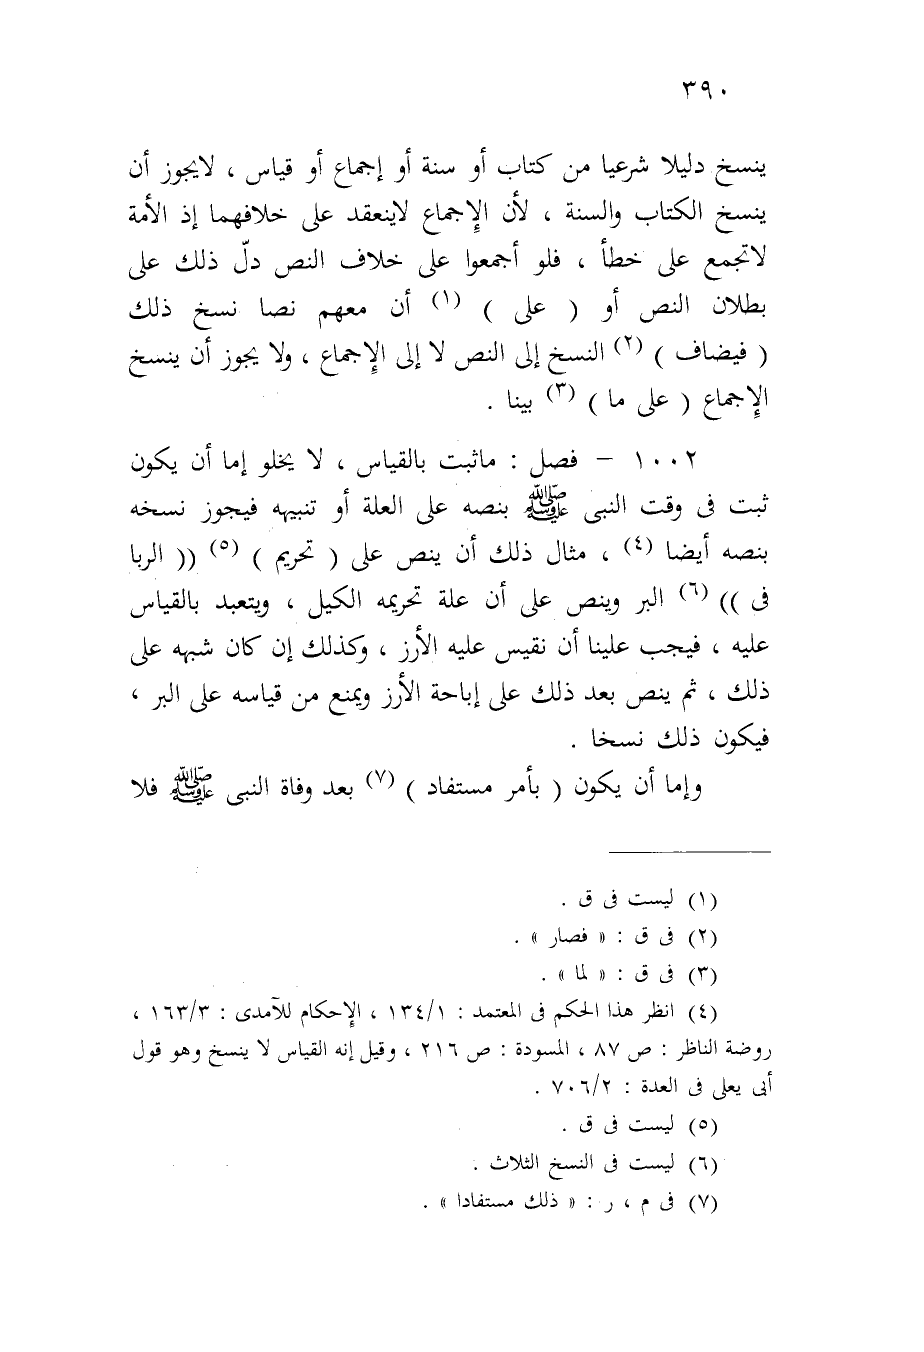 ٣٩٠
ينسخ دليلا شرعيا من كتاب أو سنة أو إجماع أو قياس ، لايجوز أن
ينسخ الكتاب والسنة ، لأن الإجماع لاينعقد على خلافهما إذ الأمة
لاتجمع على خطأ ، فلو أجمعوا على خلاف النص دلّ ذلك على
بطلان النص أو ( على ) (١) أن معهم نصا نسخ ذلك
( فيضاف ) (٢) النسخ إلى النص لا إلى الإجماع ، ولا يجوز أن ينسخ
الإجماع ( على ما ) (٣) بينا .
١٠٠٢ – فصل : ماثبت بالقياس ، لا يخلو إما أن يكون
ثبت فى وقت النبى ﷺ بنصه على العلة أو تنبيهه فيجوز نسخه
بنصه أيضا (٤) ، مثال ذلك أن ينص على ( تحريم ) (٥) (( الربا
فى )) (٦) البر وينص على أن علة تحريمه الكيل ، ويتعبد بالقياس
عليه ، فيجب علينا أن نقيس عليه الأرز ، وكذلك إن كان شبهه على
ذلك ، ثم ينص بعد ذلك على إباحة الأرز ويمنع من قياسه على البر ،
فيكون ذلك نسخا .
وإما أن يكون ( بأمر مستفاد ) (٧) بعد وفاة النبى ﷺ فلا
(١) ليست فى ق .
(٢) فى ق : « فصار » .
(٣) فى ق : « لما » .
(٤) انظر هذا الحكم فى المعتمد : ١٣٤/١ ، الإحكام للآمدى : ١٦٣/٣ ،
روضة الناظر : ص ٨٧ ، المسودة : ص ٢١٦ ، وقيل إنه القياس لا ينسخ وهو قول
أبى يعلى فى العدة : ٧٠٦/٢ .
(٥) ليست فى ق .
(٦) ليست فى النسخ الثلاث .
(٧) فى م ، ر : « ذلك مستفادا » .